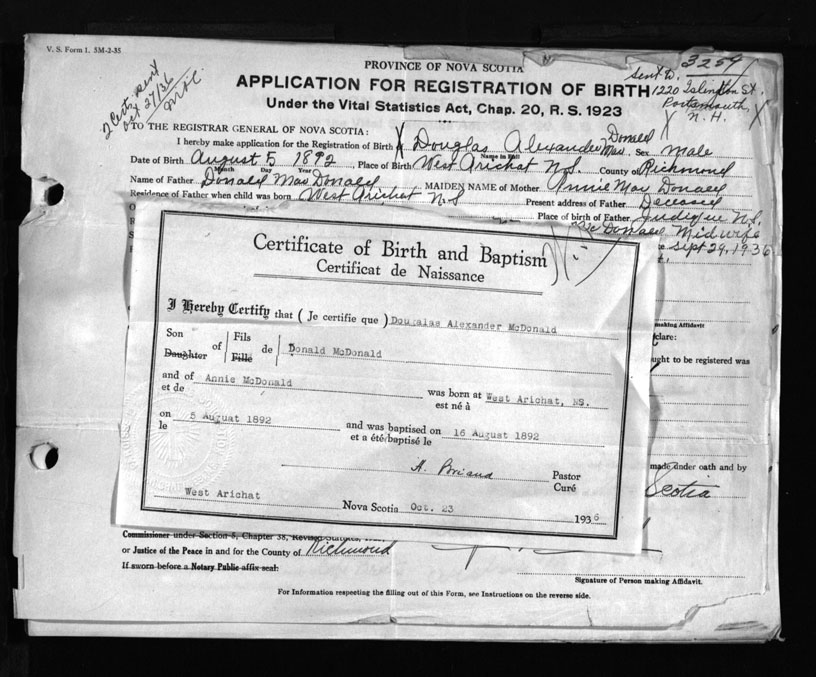 V. S. Form 1. 5M-2-35
3259
PROVINCE OF NOVA SCOTIA
APPLICATION FOR REGISTRATION OF BIRTH
Under the Vital Statistics Act, Chap. 20, R. S. 1923
2 Certs sent
Oct 27/36
Sent to
1220 Islington St.
Portsmouth,
N. H.
TO THE REGISTRAR GENERAL OF NOVA SCOTIA:
I hereby make application for the Registration of Birth Douglas Alexander Mac Donald Sex male
Name in Full
Date of Birth August 5 1892, Place of Birth West Arichat N.S. County of Richmond
Month Day Year
Name of Father Donald MacDonald MAIDEN NAME of Mother Annie MacDonald
Residence of Father when child was born West Arichat N.S Present address of Father Deceased
Place of birth of Father Judique N.S.
McDonald Midwife
Sept 29, 1936
Certificate of Birth and Baptism
Certificat de Naissance
I Hereby Certify that ( Je certifie que ) Douglas Alexander McDonald
Son Fils
of de Donald McDonald
Daughter Fille
and of Annie McDonald was born at West Arichat, NS.
et de est né à
on 5 August 1892 and was baptised on 16 August 1892
le et a été baptisé le
Pastor
Curé
West Arichat Nova Scotia Oct. 23 1936
making Affidavit
clare:
ught to be registered was
made under oath and by
Scotia
Commissioner under Section 5, Chapter 38, Revised Statutes,
or Justice of the Peace in and for the County of Richmond
If sworn before a Notary Public affix seal:
Signature of Person making Affidavit.
For Information respecting the filling out of this Form, see Instructions on the reverse side.